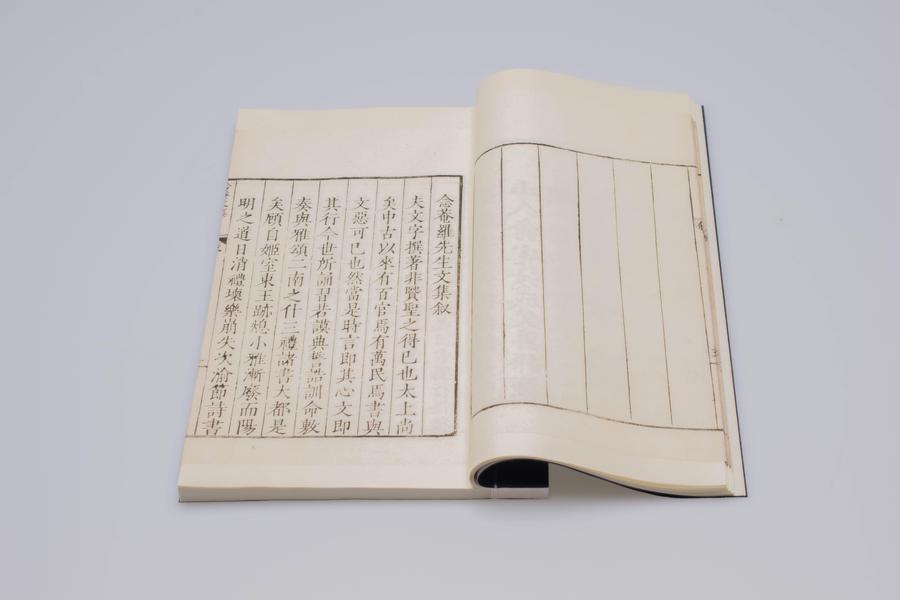 念菴羅先生文集叙
夫文字撰著非賢聖之得已也太上尚
矣中古以來有百官焉有萬民焉書與
文惡可已也然當是時言即其心文即
其行今世所誦習若謨典誓誥訓命敷
奏與雅頌二南之什三禮諸書大都是
矣顧自姬室東王跡熄小雅漸廢而陽
明之道日消禮壞樂崩失次渝節詩書